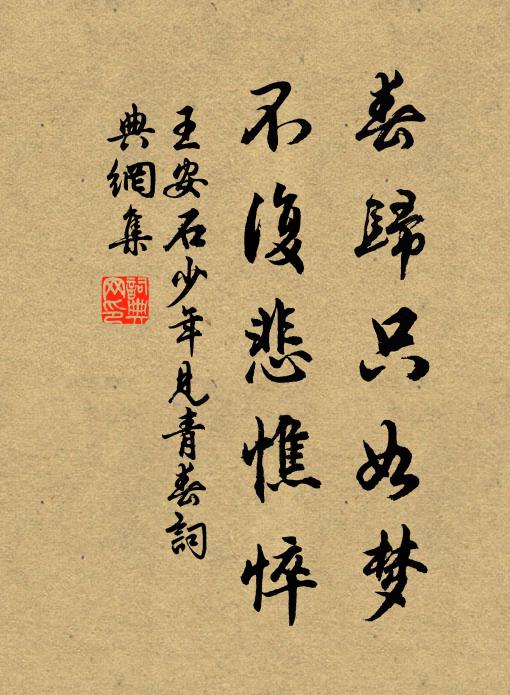 春歸只如梦
不復悲憔悴
王安石少年見青春詞
典網集
詞典
网印